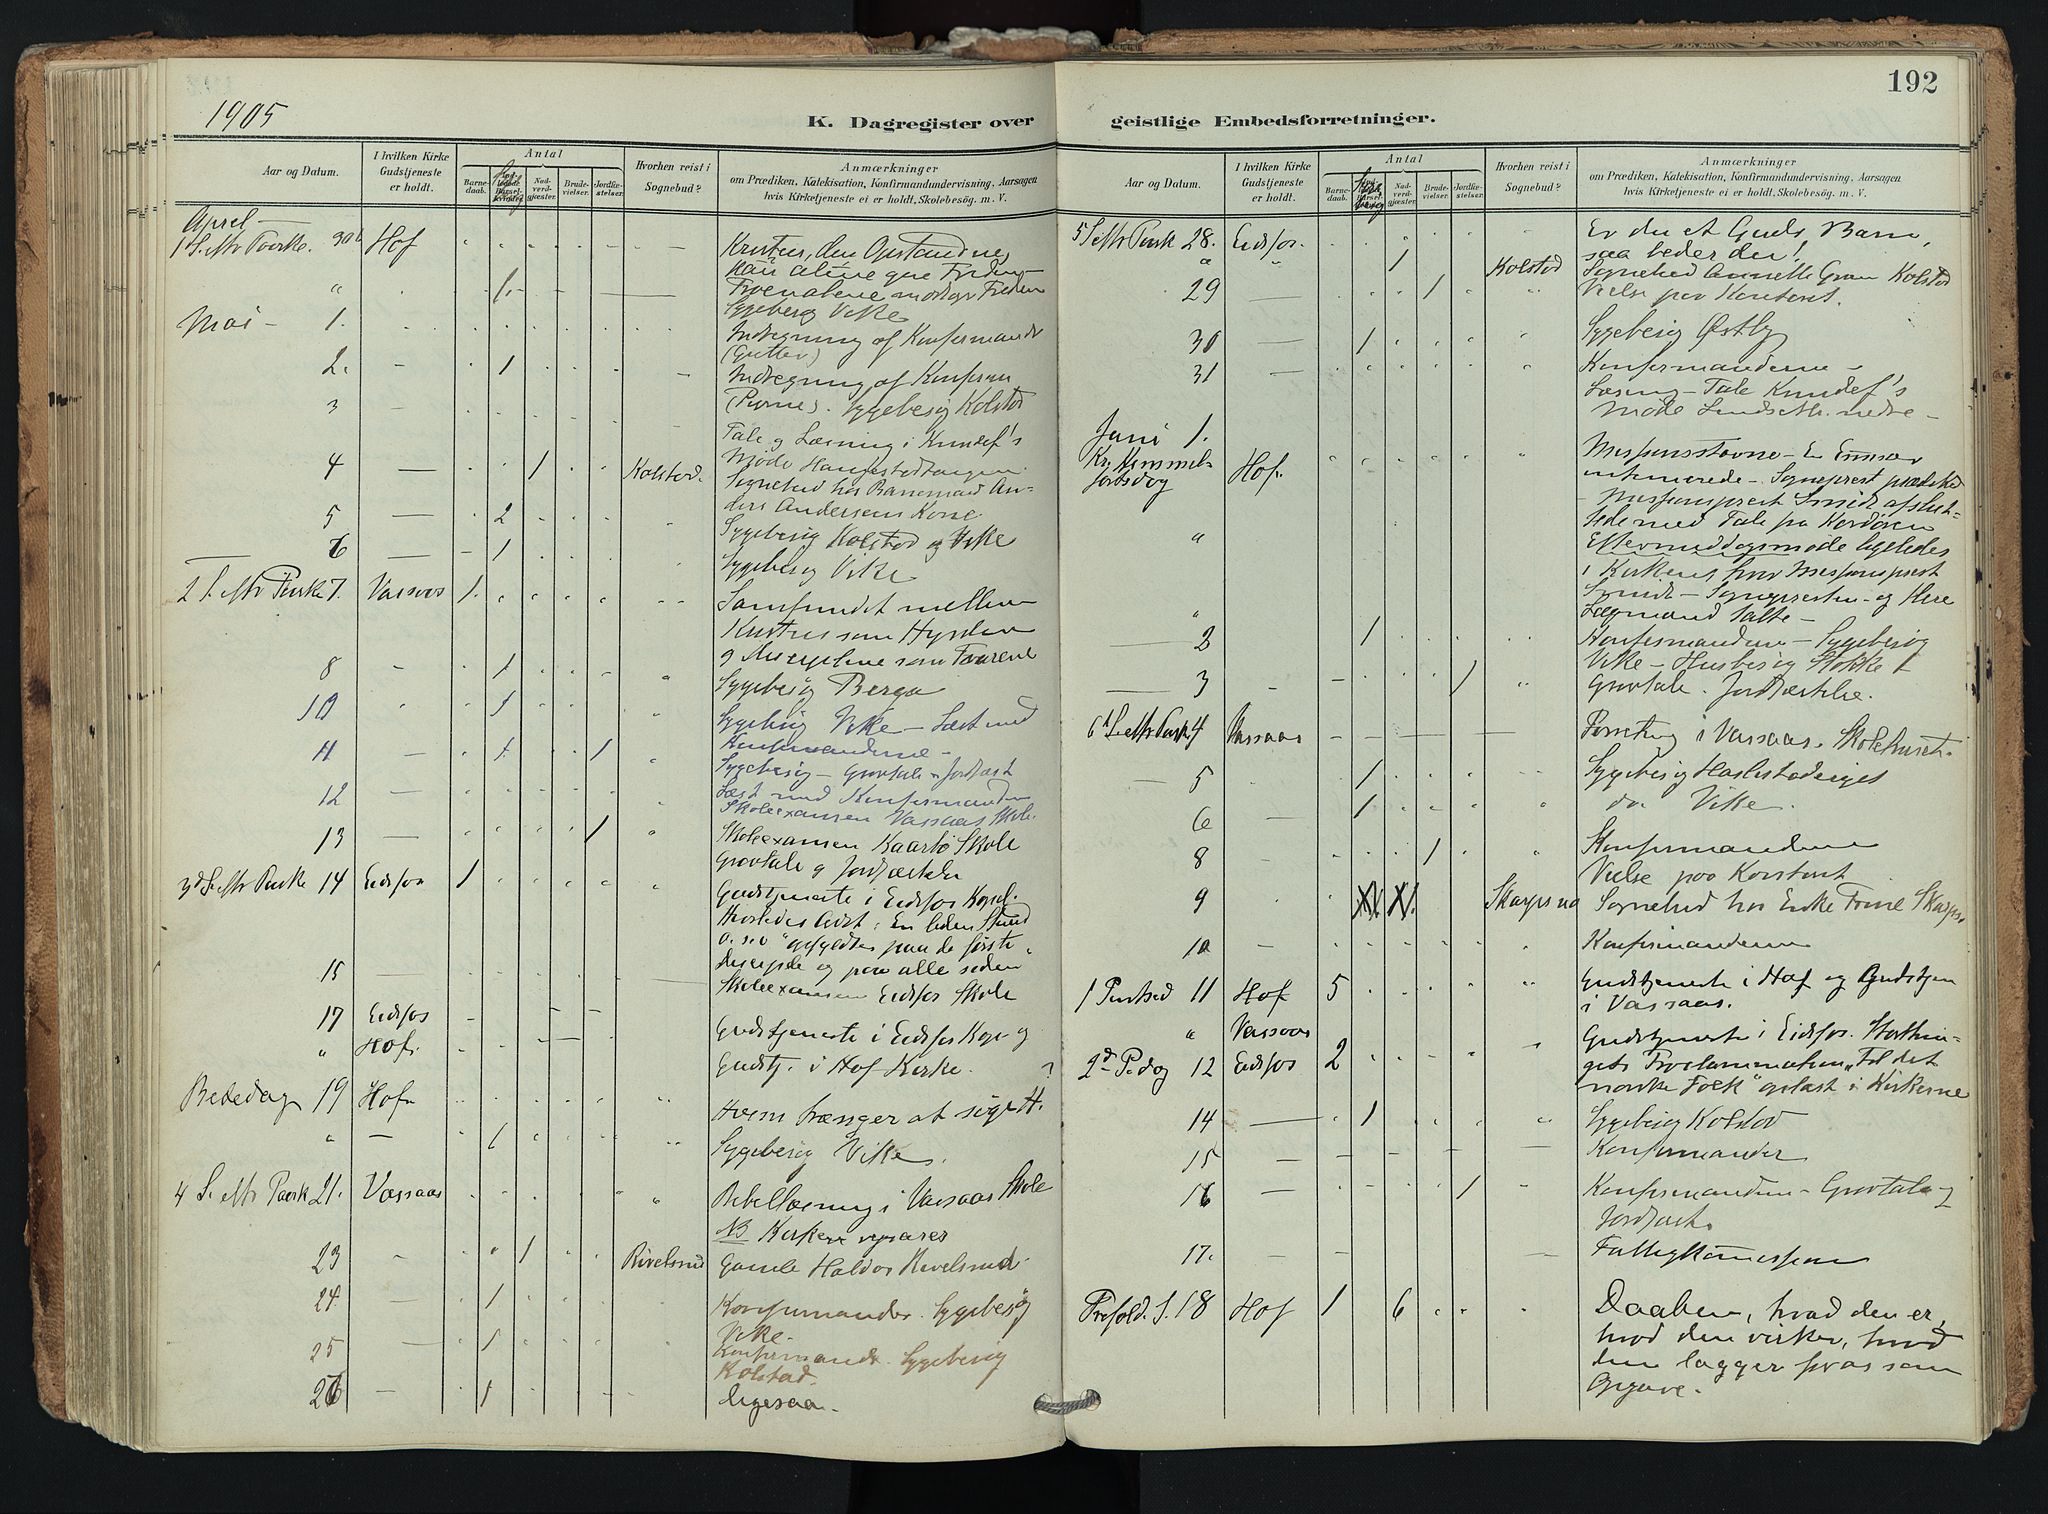 192
1905
K. Dagregister over
geistlige Embedsforretninger.
Aar og Datum.
I hvilken Kirke
Gudstjeneste
er holdt.
Antal
Barne-
daab.
Nad-
verd-
gjæster.
Brude-
vielser.
Jordfæ-
stelser.
Hvorhen reist i
Sognebud?
Anmærkninger
om Prædiken, Katekisation, Konfirmandundervisning, Aarsagen
hvis Kirketjeneste ei er holdt, Skolebesög. m. V.
April
1 S. eftr Paaske. 30 Hof
Kristus, den Opstandne,
kan alene give Freden
Troen alene modtager Freden
" 1
Sygebesøg Vike
Mai 1.
Indtegning af Konfirmander
(Gutter)
2. 1
Indtegning af Konfirm
(Pigerne). Sygebesøg Kolstad
3
Tale og Læsning i Kvindef's
Møde Hangestadhaugen.
4 1 Kolstad.
Sognebud hos Banemand An-
ders Andersens Kone
5 2
Sygebesøg Kolstad og Vike
6 1
Sygebesøg Vike
2 S. eftr Paaske 7. Vassaas 1.
Samfundet mellem
Kristus som Hyrden
og Disciplene som Faarene
8 1
Sygebesøg Berga
10 1
Sygebesøg Vike – Læst med
Konfirmanderne –
11 1 1
Sygebesøg – Gravtale og Jordfæst
12
Læst med Konfirmanden
Skoleexamen Vassaas Skole.
13 1
Skoleexamen Kaarbø Skole
Gravtale og Jordfæstelse
3d S. eftr Paaske 14 Eidsfos 1
Gudstjeneste i Eidsfos Kapel.
Herledes Ordet: En liden Stund
o. s. v. opfyldtes paa de første
Disciple og paa alle siden
15
Skoleexamen Eidsfos Skole
17 Eidsfos
Gudstjeneste i Eidsfos Kape og
" Hof.
Gudstj. i Hof Kirke.
Bededag 19 Hof
Hvem trænger at sige H. ?
" 1
Sygebesøg Vike.
4 S. eftr Paask 21. Vassaas
Bibellæsning i Vassaas Skole
NB Kirken repareres
23 1 Rivelsrud
Gamle Haldor Rivelsrud
24 1
Konfirmander. Sygebesøg
Vike.
25 1
Konfirmandr. Sygebesøg
Kolstad.
26 1
Ligesaa.
Aar og Datum.
I hvilken Kirke
Gudstjeneste
er holdt.
Antal
Barne-
daab.
Nad-
verd-
gjæster.
Brude-
vielser.
Jordfæ-
stelser.
Hvorhen reist i
Sognebud?
Anmærkninger
om Prædiken, Katekisation, Konfirmandundervisning, Aarsagen
hvis Kirketjeneste ei er holdt, Skolebesög. m. V.
5 S. eftr Paask 28. Eidsfos
Er du et Guds Barn,
saa beder du!
" 1 Kolstad
Sognebud Annette Gran Kolstad
29 1
Vielse paa Kontoret.
30 1
Sygebesøg Østby
31
Konfirmanderne –
Læsning – Tale Kvindef's
Møde nedre –
Juni 1.
Kr. Himmel-
fartsdag Hof
Missionsstævne –
– Sogneprest prædiked
– Missionsprest Smidt afslut-
tede med Tale fra Kordøren
"
Eftermiddagsmøde ligeledes
i Kirken, hvor Missionsprest
Smidt – Sognepresten – og Hr
Lægmand talte –
2 1
Konfirmanderne – Sygebesøg
Vike – Husbesøg Stokke
3 1
Gravtale. Jordfæstelse.
6 S. eftr Paask 4 Vassaas
Forretng i Vassaas Skolehuset.
5 1
Sygebesøg Haslestadeiget
6 1
do Vike.
8 1
Konfirmanderne
Vielse paa Kontoret
9 Skarpsnd
Sognebud hos Enke Skarps.
10
Konfirmanderne
1 Pintsed 11 Hof 5
" Vassaas
Gudstjeneste i Hof og Gudstjen
i Vassaas.
2d P.dag 12 Eidsfos 2
Gudstjeneste i Eidsfos. Storthin-
gets Proclammation „Til det
norske Folk“ oplæst i Kirkerne
14 1
Sygebesøg Kolstad
15
Konfirmander
16 1
Konfirmanderne – Gravtale og
Jordfæst.
17.
Fattigkommission
Trefold. S. 18 Hof 1 6
Daaben, hvad den er,
hvad den virker, hvad
den lægger paa os som
Opgave.